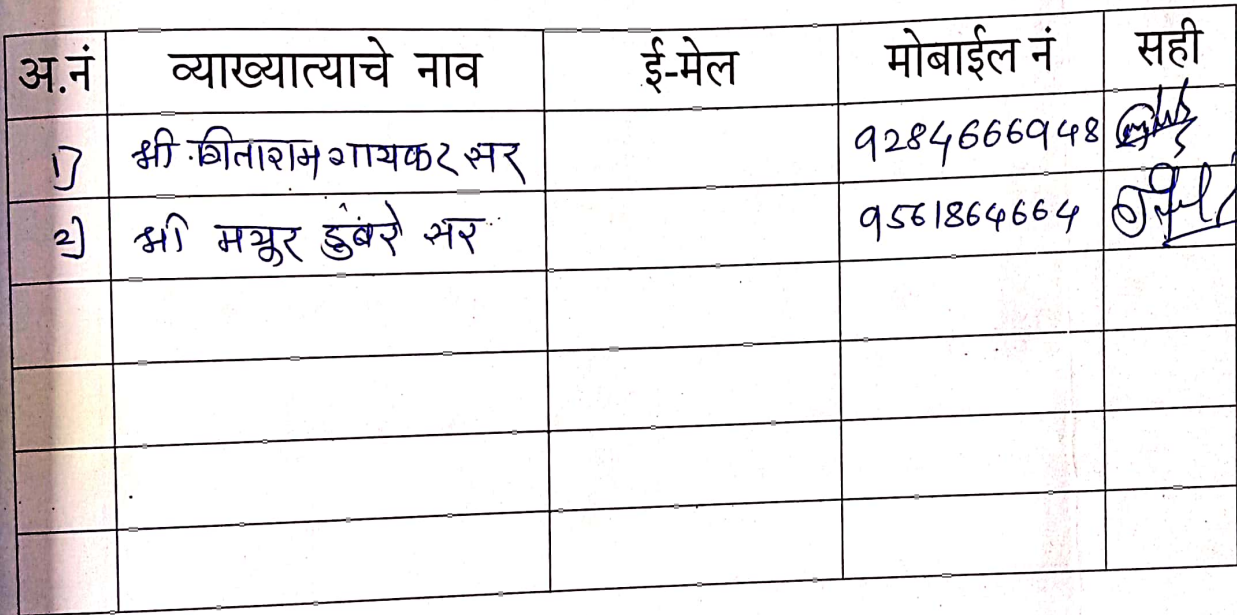 अ.नं व्याख्यात्याचे नाव ई-मेल मोबाईल नं सही
1) श्री. सिताराम गायकर सर 9284666948
2) श्री मयुर डुंबरे सर 9561864664